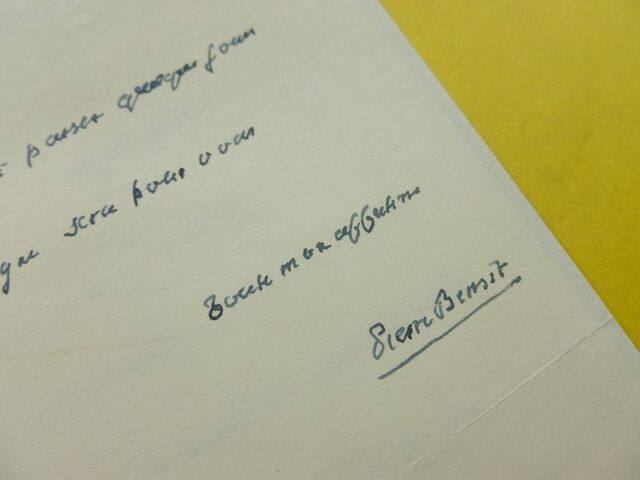 passer quelques jours
que sera pour vous
Toute mon affection
Pierre Benoit